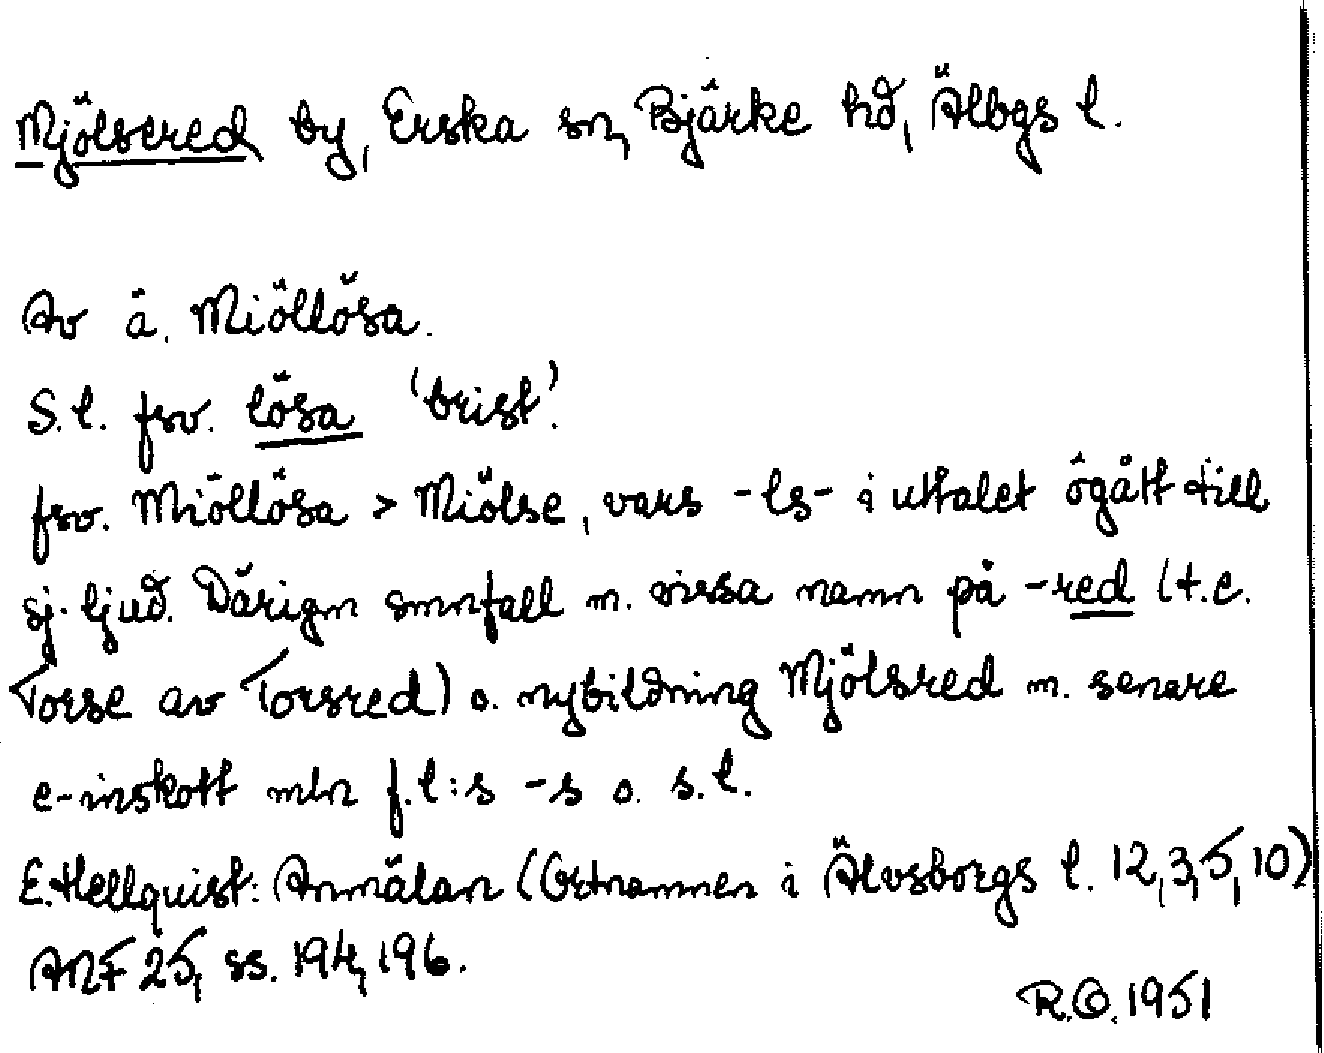 Mjölsered by, Erska sn, Bjärke hd, Älbgs l.
Av å. Miöllösa.
S.l. fsv. lösa 'brist'.
fsv. Miöllösa > Miölse, vars -ls- i uttalet ögått till
sj-ljud. Därigm smnfall m. vissa namn på -red (t.e.
Torse av Torsred) o. nybildning Mjölsred m. senare
e-inskott mln f.l:s -s o. s.l.
E. Hellquist: Anmälan (Ortnamnen i Älvsborgs l. 12, 3, 5, 10)
ANF 25, ss. 194, 196.
R.O. 1951